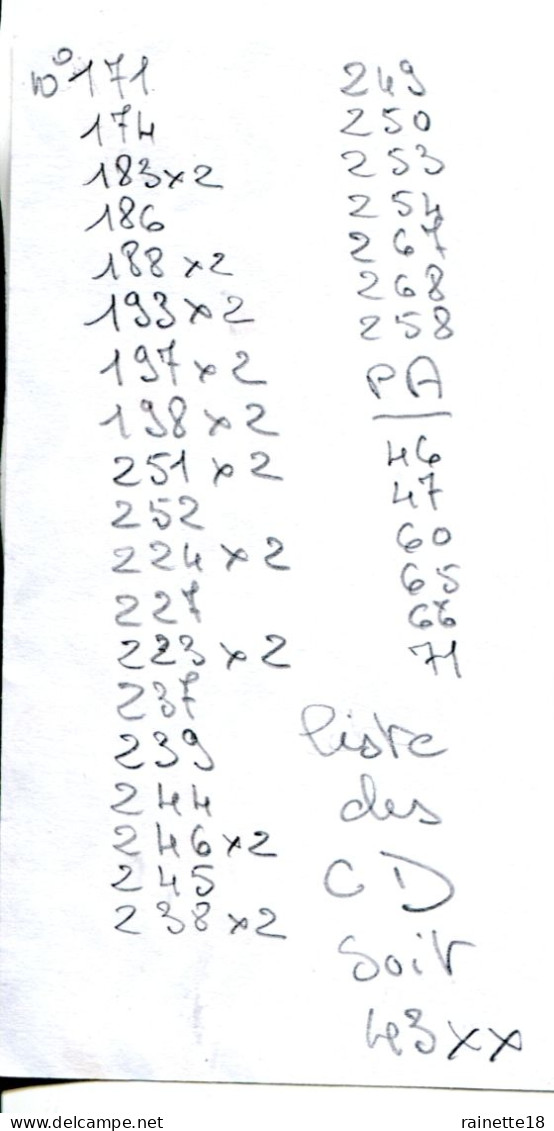 N° 171
174
183 x 2
186
188 x 2
193 x 2
197 x 2
198 x 2
251 x 2
252
224 x 2
227
223 x 2
237
239
244
246 x 2
245
238 x 2
249
250
253
254
267
268
258
PA
46
47
60
65
66
71
liste
des
CD
soit
43 xx
rainette18